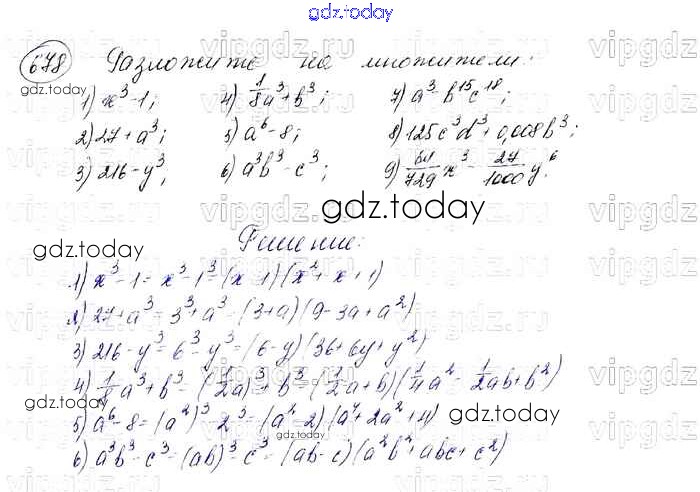 gdz.today
678 Разложите на множители:
1) x³-1; 4) 1/8a³+b³; 7) a³-b¹⁵c¹⁸;
2) 27+a³; 5) a⁶-8; 8) 125c³d³+0,008b³;
3) 216-y³; 6) a³b³-c³; 9) 64/729x³-27/1000y⁶
gdz.today
gdz.today
Решение:
1) x³-1=x³-1³=(x-1)(x²+x+1)
2) 27+a³=3³+a³=(3+a)(9-3a+a²)
3) 216-y³=6³-y³=(6-y)(36+6y+y²)
4) 1/8a³+b³=(1/2a)³+b³=(1/2a+b)(1/4a²-1/2ab+b²)
gdz.today
5) a⁶-8=(a²)³-2³=(a²-2)(a⁴+2a²+4)
gdz.today
gdz.today
6) a³b³-c³=(ab)³-c³=(ab-c)(a²b²+abc+c²)
vipgdz.ru